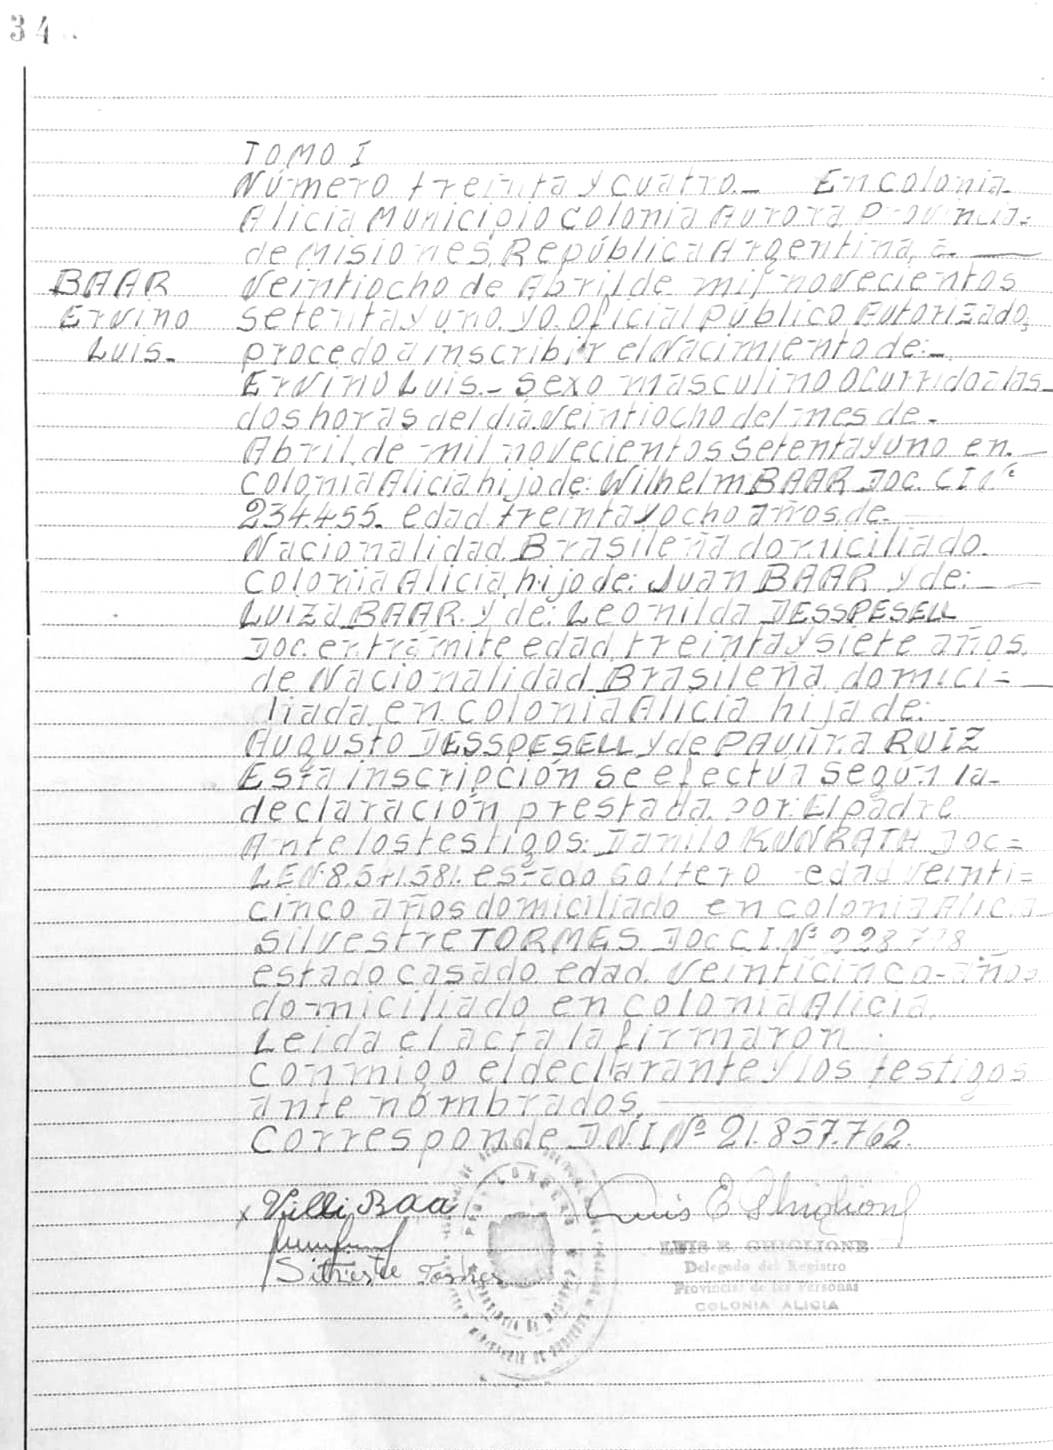 34
TOMO I
Número treinta y cuatro.- En Colonia
Alicia Municipio Colonia Aurora Provincia:
de Misiones, República Argentina, a.
BAAR Veintiocho de Abril de mil novecientos
Ervino setenta y uno. yo. Oficial Público Autorizado,
Luis.- procedo a inscribir el Nacimiento de:
Ervino Luis.- sexo masculino Ocurrido a las
dos horas del día Veintiocho del mes de.
Abril. de mil novecientos setenta y uno en.
Colonia Alicia hijo de: Wilhelm BAAR Doc. C I Nº
234.455. edad treinta y ocho años. de.
Nacionalidad Brasileña domiciliado.
Colonia Alicia hijo de: Juan BAAR y de:
Luiza BAAR. y de: Leonilda DESSPESELL
Doc. en trámite edad, treinta y siete años.
de Nacionalidad Brasileña domici=
liada en Colonia Alicia hija de:
Augusto DESSPESELL y de RUIZ
Esta inscripción se efectúa según la-
declaración prestada. por: El padre
Ante los testigos: Danilo KUNRATH. Doc=
LEN: estado Soltero edad Veinti=
cinco años domiciliado en Colonia Alicia
Silvestre TORMES. Doc C I. Nº
estado casado edad. Veinticinco-años
domiciliado en Colonia Alicia.
Leida el acta la firmaron
Conmigo el declarante y los testigos
ante nombrados.
Corresponde D.N.I Nº 21.857.762.
x Villi Baar Luis E Ghiglione
LUIS E. GHIGLIONE
Silvestre Tormes Delegado del Registro
Provincial de las Personas
COLONIA ALICIA